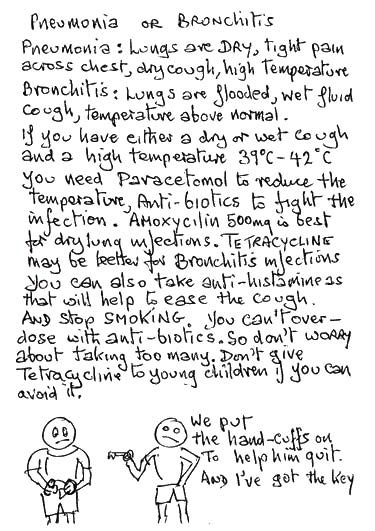 Pneumonia or Bronchitis
Pneumonia: Lungs are DRY, tight pain
across chest, dry cough, high Temperature
Bronchitis: Lungs are flooded, wet fluid
cough, temperature above normal.
If you have either a dry or wet cough
and a high temperature 39°C-42°C
you need Paracetomol to reduce the
temperature, Anti-biotics to fight the
infection. Amoxycilin 500mg is best
for dry lung infections. TETRACYCLINE
may be better for Bronchitis infections
You can also take anti-histamineas
that will help to ease the cough.
AND STOP SMOKING. You can't over-
dose with anti-biotics. So don't WORRY
about taking too many. Don't give
Tetracycline to young children if you can
avoid it.
We put
the hand-cuffs on
To help him quit.
AND I've got the key